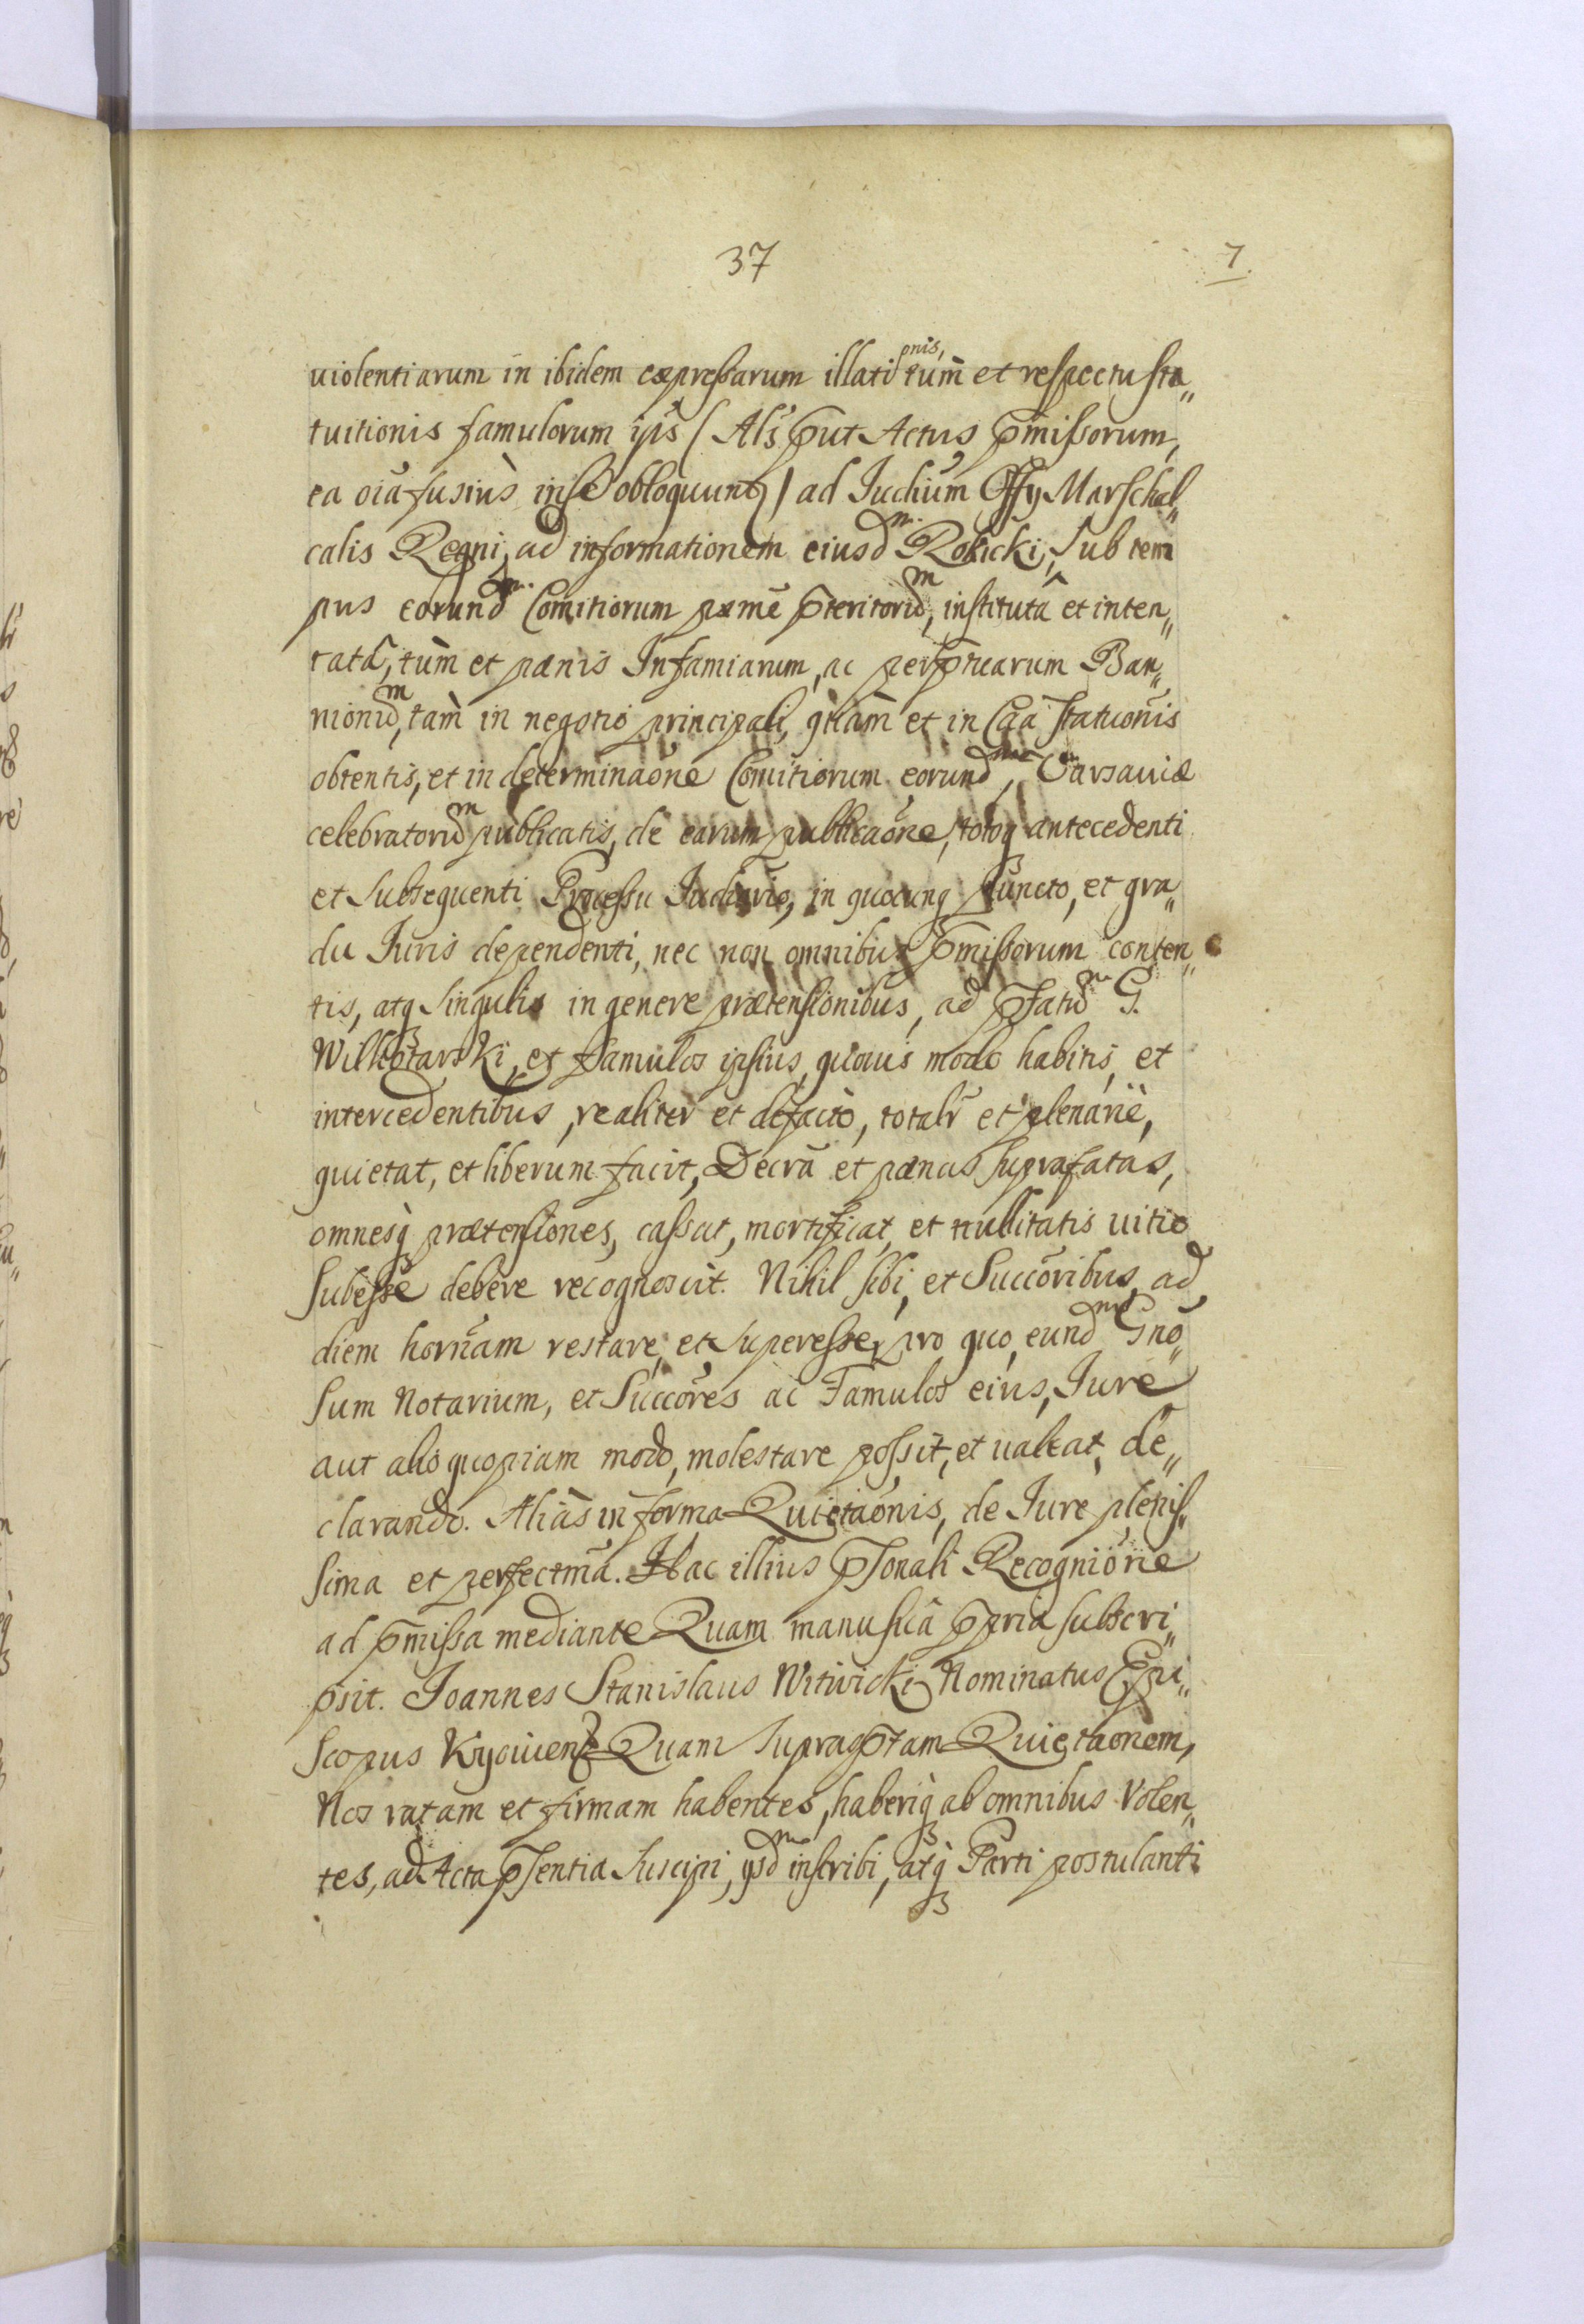 37
7.
uiolentiarum in ibidem expressarum illationis, tum et respectu sta„
tuitionis famulorum ips̃ (Als̃ p̃ut Actus p̃missorum,
ea oĩa fusiùs in se obloquunt) ad Iudiũm Offy Marschal„
calis Regni, ad informationem eiusdm. Robicki, sub tem
pus eorundm. Comitiorum proxmẽ p̃teritorũdm, institutâ et inten„
tatâ, tùm et pænis Infamiarum, ac perp̃tuarum Ban„
nionũdm, tàm in negotio principali, quàm et in Cãa statuõnis
obtentis, et in determinaõne Comitiorum eorundm, Varsauiæ
celebratorũdm publicatis, de earum publicaõne, totoq₃ antecedenti
et subsequenti Processu Iudiãrio, in quocunq₃ puncto, et gra„
du Iuris dependenti, nec non omnibus p̃missorum conten„
tis, atq₃ singulis in genere prætensionibus, ad p̃fatũdm G.
Wilkostawski, et famulos ipsius, quouis modo habitis, et
intercedentibus, realiter et defacto, totalr̃ et plenariè,
quietat, et liberum facit, Decrã et pænas suprafatas,
omnesq₃ prætensiones, cassat, mortificat, et nullitatis uitio
subesse debere recognoscit. Nihil sibi, et Succõribus, ad
diem hornãm restare, et superesse, pro quo, eundm Gnõ„
sum Notarium, et Succõres ac Famulos eius, Iure
aut alio quopiam modo, molestare possit, et ualeat, de„
clarando. Aliàs in forma Quietaõnis, de Iure plenis„
sima et perfectmã. Hac illius p̃sonali Recogniõne
ad p̃missa mediante Quam manu suâ p̃pria subscri„
psit. Joannes Stanislaus Witwicki Nominatus Epi„
scopus Kyouien̄ Quam suprap̃tam Quietaõnem,
Nos ratam et firmam habentes, haberiq₃ ab omnibus Volen„
tes, ad Acta p̃sentia suscipi, ysdm inscribi, atq₃ Parti postulanti